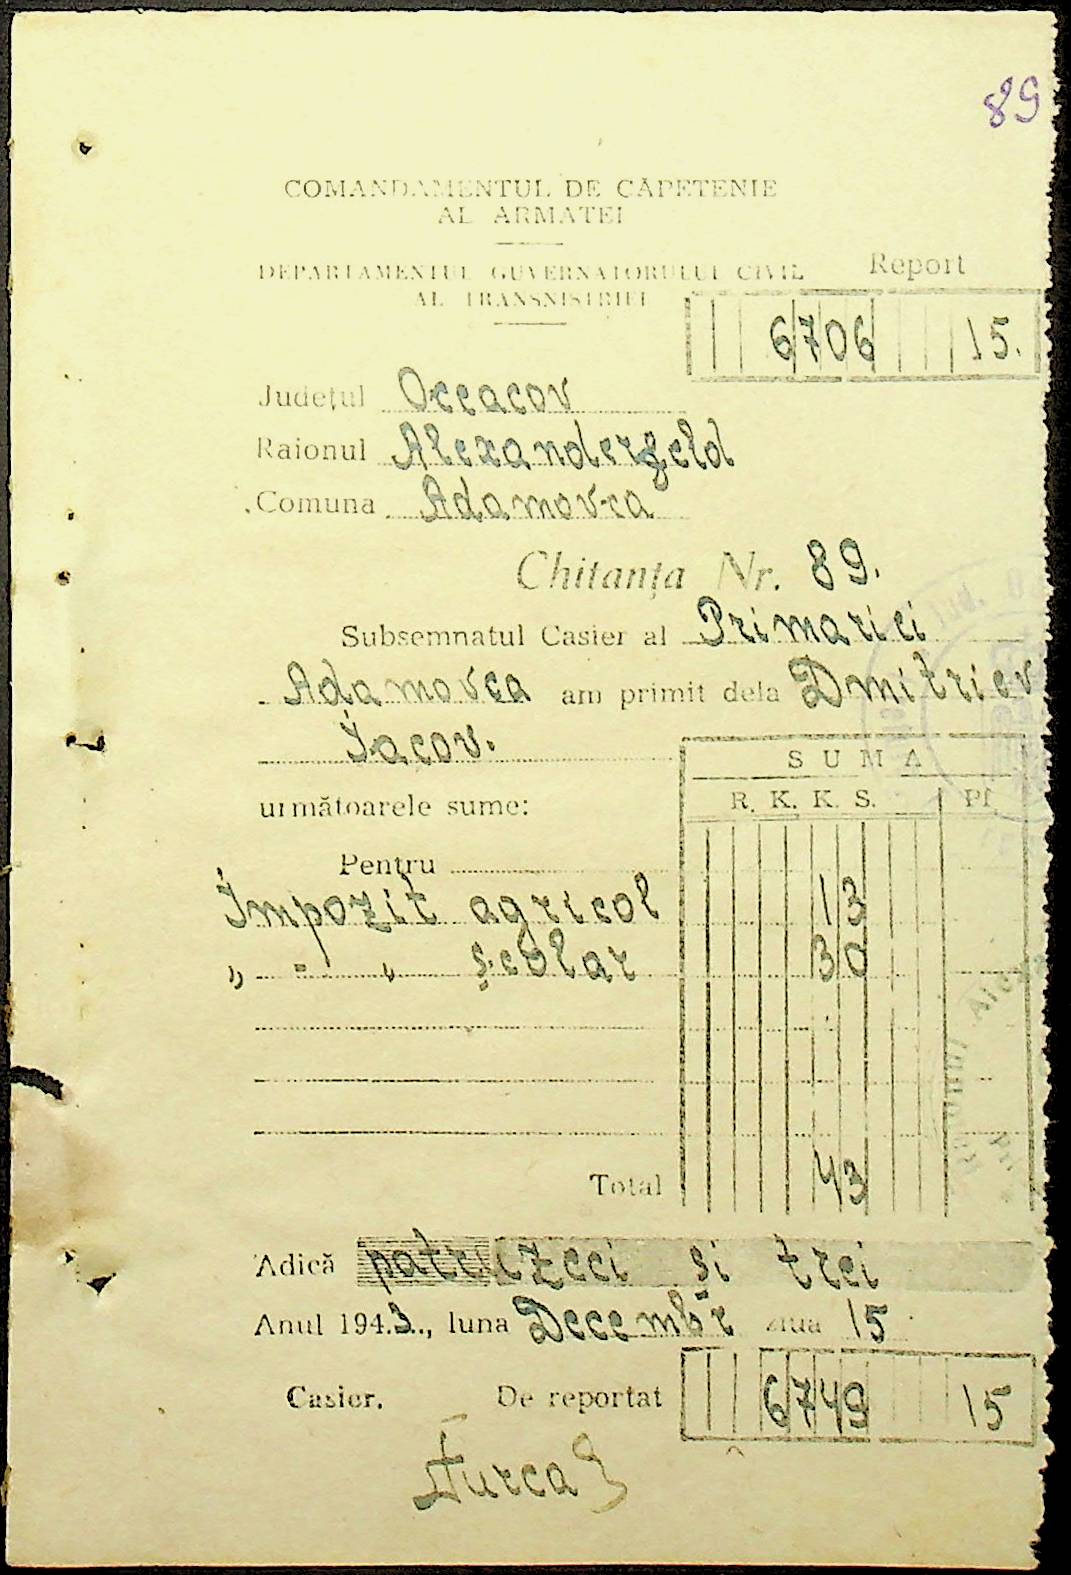 89
COMANDAMENTUL DE CĂPETENIE
AL ARMATEI
DEPARTAMENTUL GUVERNATORULUI CIVIL
AL TRANSNISTRIEI
Report
6706 15.
Județul Occacov
Raionul Alexanderfeld
Comuna Adamovca
Chitanța Nr. 89.
Subsemnatul Casier al Primariei
Adamovca am primit dela Dmitriev
Iacov.
următoarele sume:
SUMA
R. K. K. S. Pf.
Pentru
Impozit agricol 13
„ " „ școlar 30
Total 43
Adică patruzeci și trei
Anul 1943., luna Decembr ziua 15
Casier. De reportat 6749 15